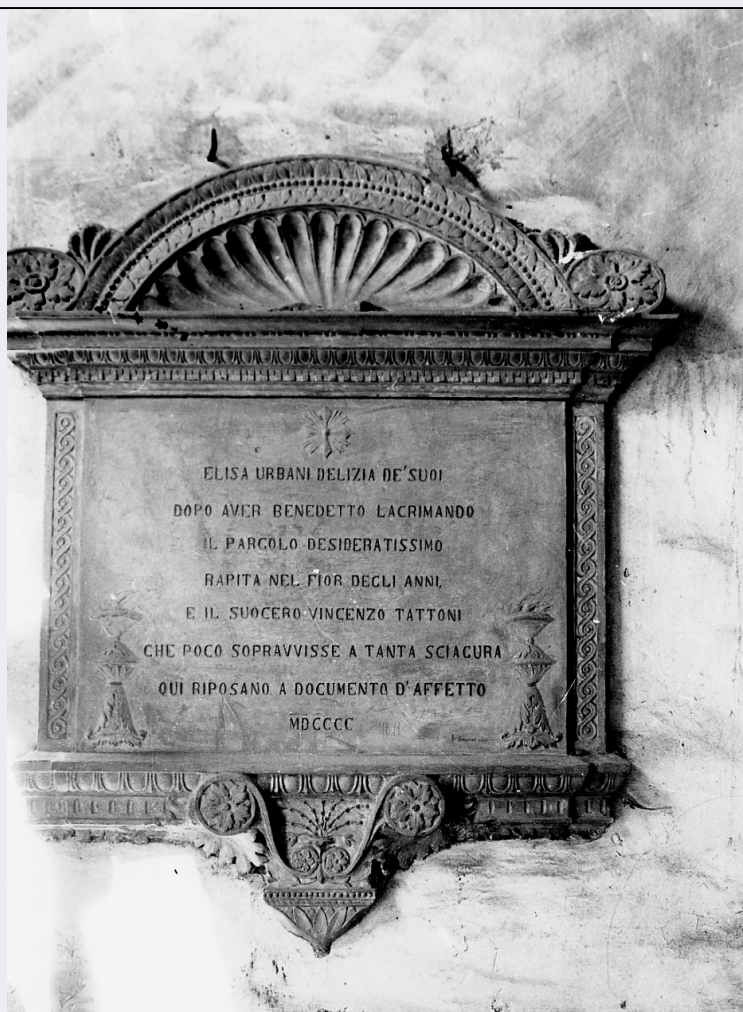 ELISA URBANI DELIZIA DE'SUOI
DOPO AVER BENEDETTO LACRIMANDO
IL PARGOLO DESIDERATISSIMO
RAPITA NEL FIOR DEGLI ANNI,
E IL SUOCERO VINCENZO TATTONI
CHE POCO SOPRAVVISSE A TANTA SCIAGURA
QUI RIPOSANO A DOCUMENTO D'AFFETTO
MDCCCC